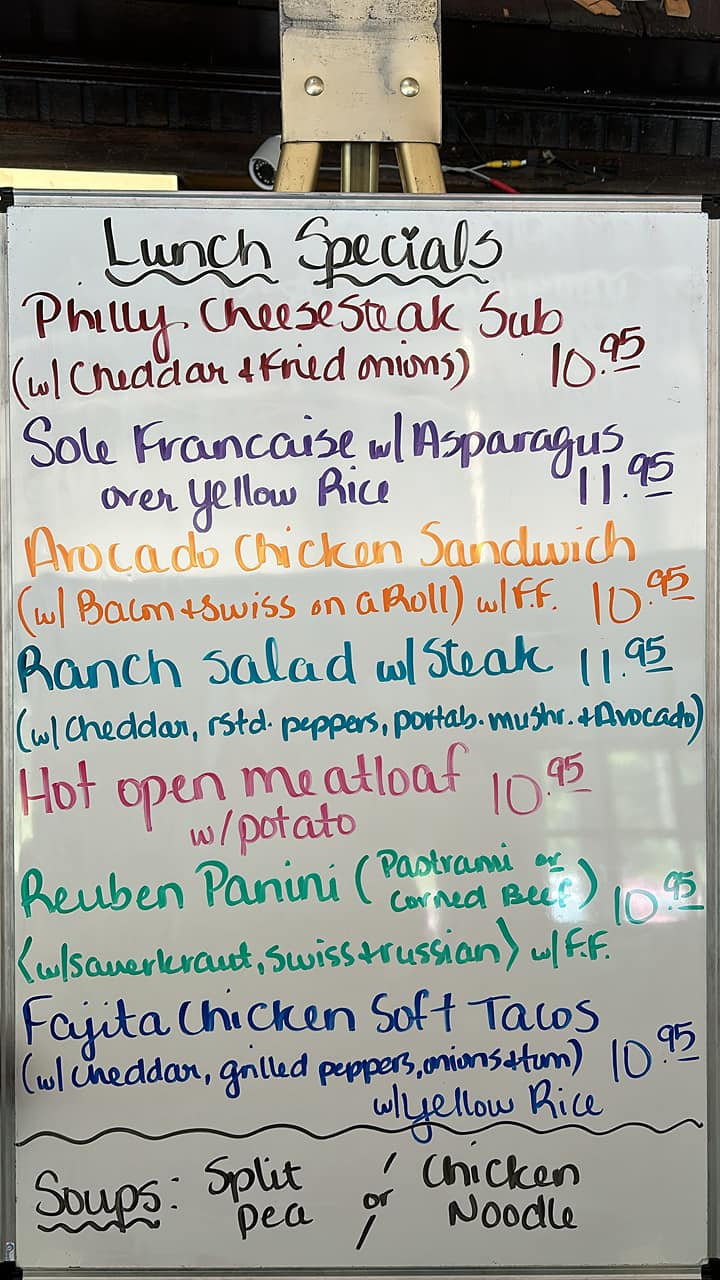 Lunch Specials
Philly Cheesesteak Sub
(w/ Cheddar & Fried onions) 10.95
Sole Francaise w/ Asparagus
over yellow Rice 11.95
Avocado Chicken Sandwich
(w/ Bacon + Swiss on a Roll) w/ F.F. 10.95
Ranch Salad w/ Steak 11.95
(w/ Cheddar, rstd. peppers, portab. mushr. + Avocado)
Hot open meatloaf 10.95
w/ potato
Reuben Panini (Pastrami or
Corned Beef) 10.95
(w/ sauerkraut, Swiss + russian) w/ F.F.
Fajita Chicken Soft Tacos
(w/ cheddar, grilled peppers, onions + tom) 10.95
w/ yellow Rice
Soups: Split / Chicken
Pea or / Noodle